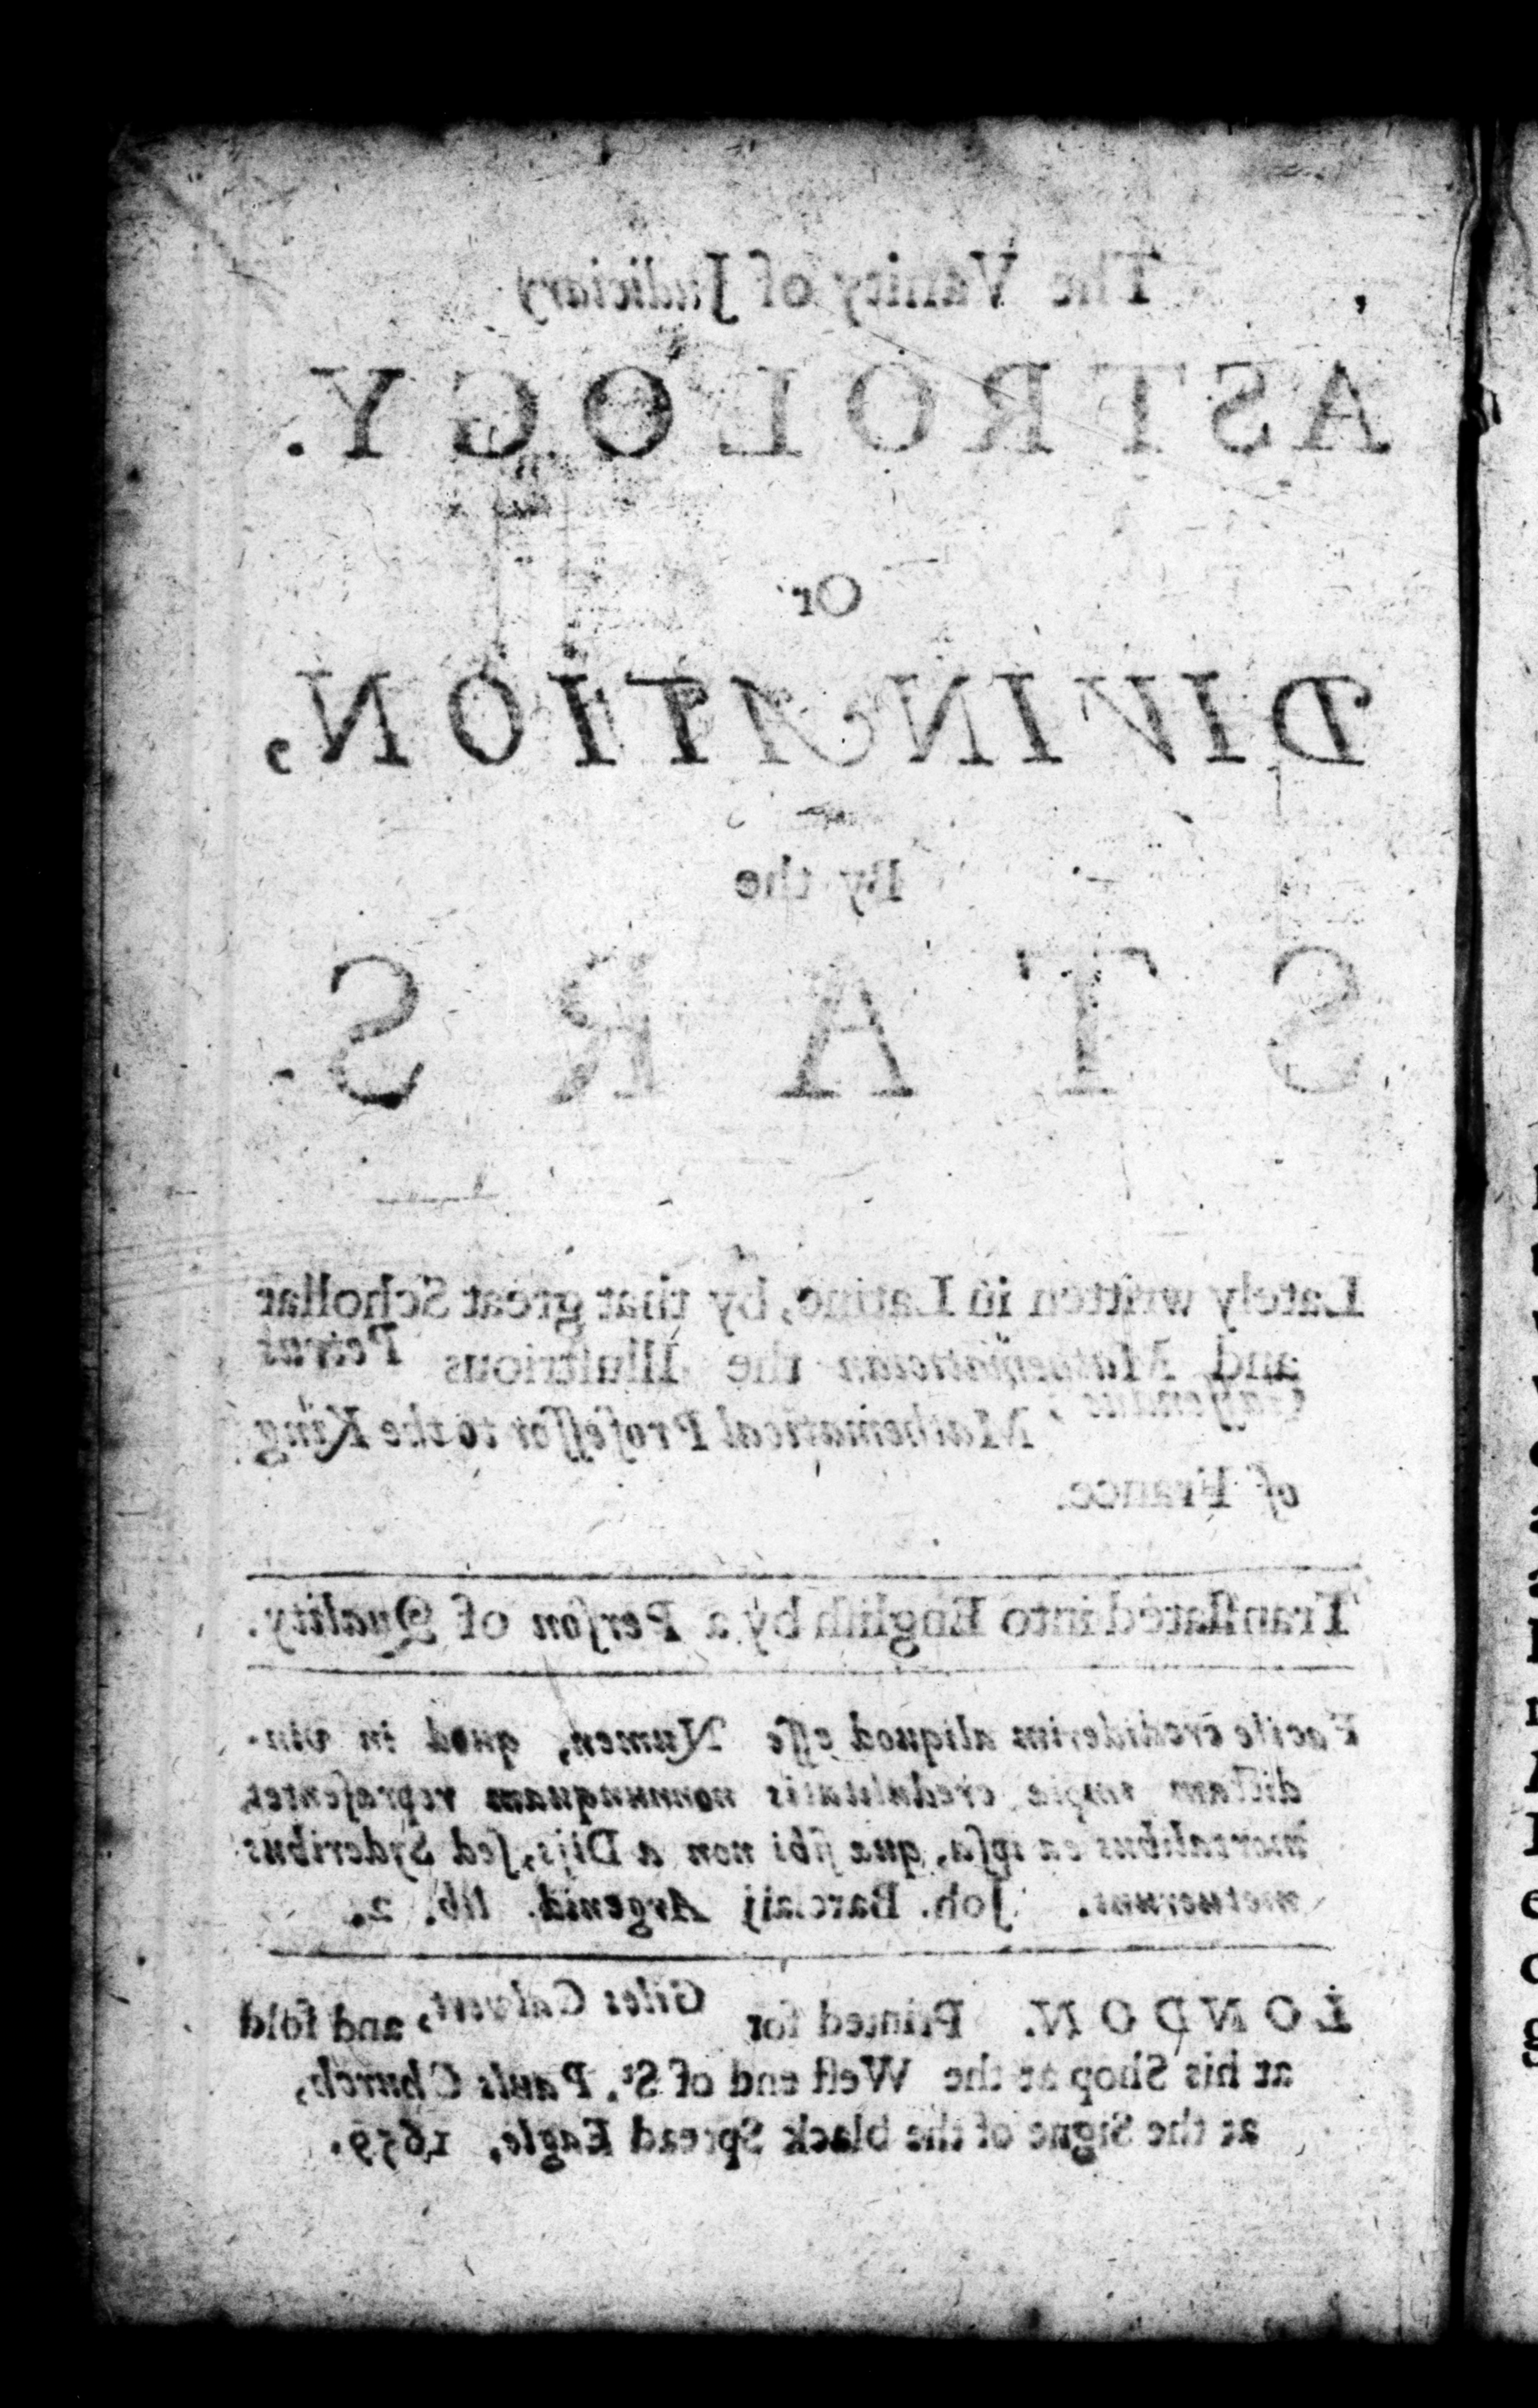 The Vanity of Judiciary
ASTROLOGY.
Or
DIVINATION,
By the
STARS.
Lately written in Latine, by that great Schollar
and Mathematician the Illuſtrious Petrus
Gaſſendus; Mathematical Profeſſor to the King
of France.
Tranſlated into Engliſh by a Perſon of Quality.
Facile crediderim aliquod eſſe Numen, quod in vin-
dictam credulitatis nonnunquam repræſentet
mortalibus ea ipſa, quæ ſibi non a Dijs, ſed Syderibus
metuerunt. Joh. Barclaij Argenid. lib. 2.
LONDON. Printed for Giles Calvert, and ſold
at his Shop at the Weſt end of St. Pauls Church,
at the Signe of the black Spread Eagle, 1659.